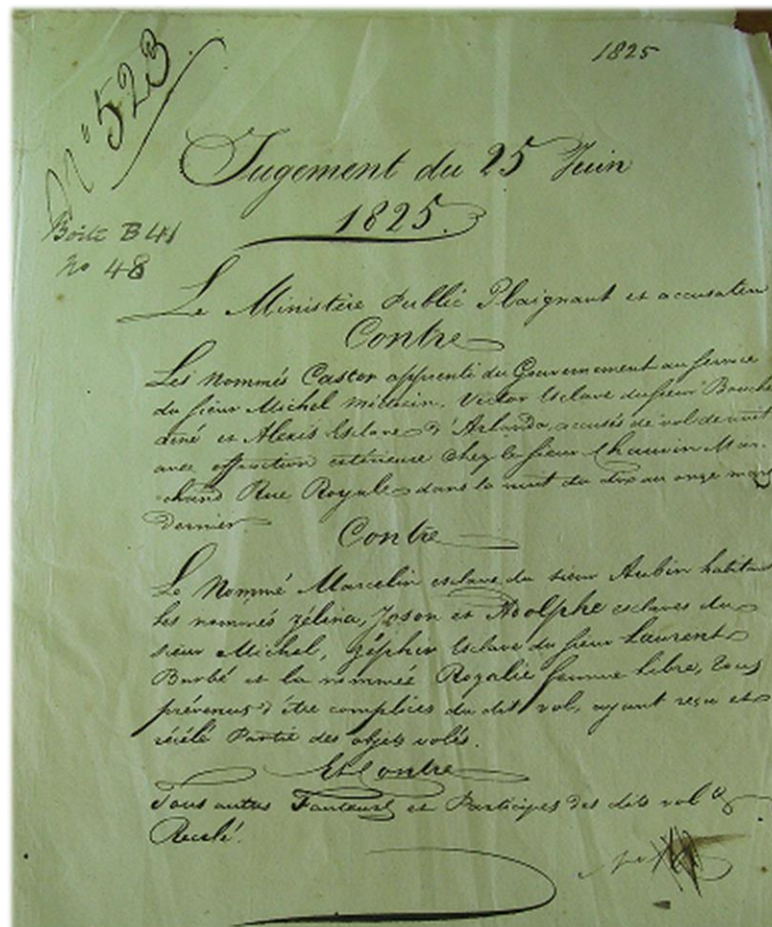 1825
N° 523
Jugement du 25 Juin
1825.
Boîte B 41
no 48
Le Ministère Public Plaignant et accusateur
Contre
Les Nommés Castor apprenti du Gouvernement au service
du sieur Michel Victor Esclave du sieur Bouché
et Alexis Esclave d'Arlanda, accusés de vol de nuit
avec effraction extérieure chez le sieur Chauvin Mar-
chand Rue Royale dans la nuit du dix au onze mars
dernier
Contre
Le Nommé Marcelin esclave du sieur Aubin habitant
les nommés Zélina, Joson et Adolphe esclaves du
sieur Michel, Zéphir Esclave du sieur Laurent
Barbé et la nommée Rozalie femme libre, tous
prévenus d'être complices du dit vol, ayant reçu et
récélé Partie des objets volés.
Et Contre
Tous autres Fauteurs et Participes des dits vol &
Recelé.